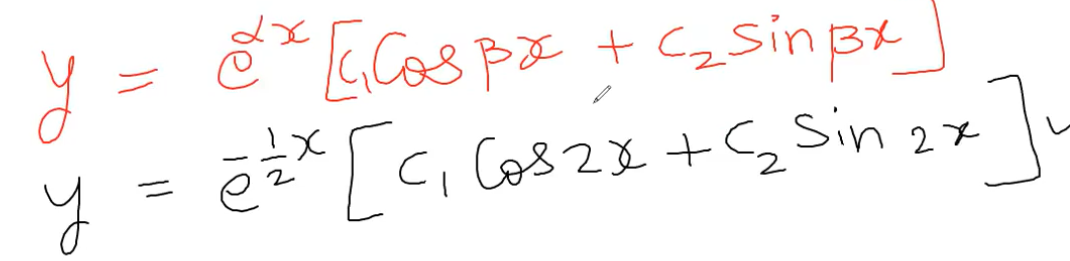 y = e^{αx} [C₁ Cos βx + C₂ Sin βx]
y = e^{-\frac{1}{2}x} [C₁ Cos 2x + C₂ Sin 2x] ✓